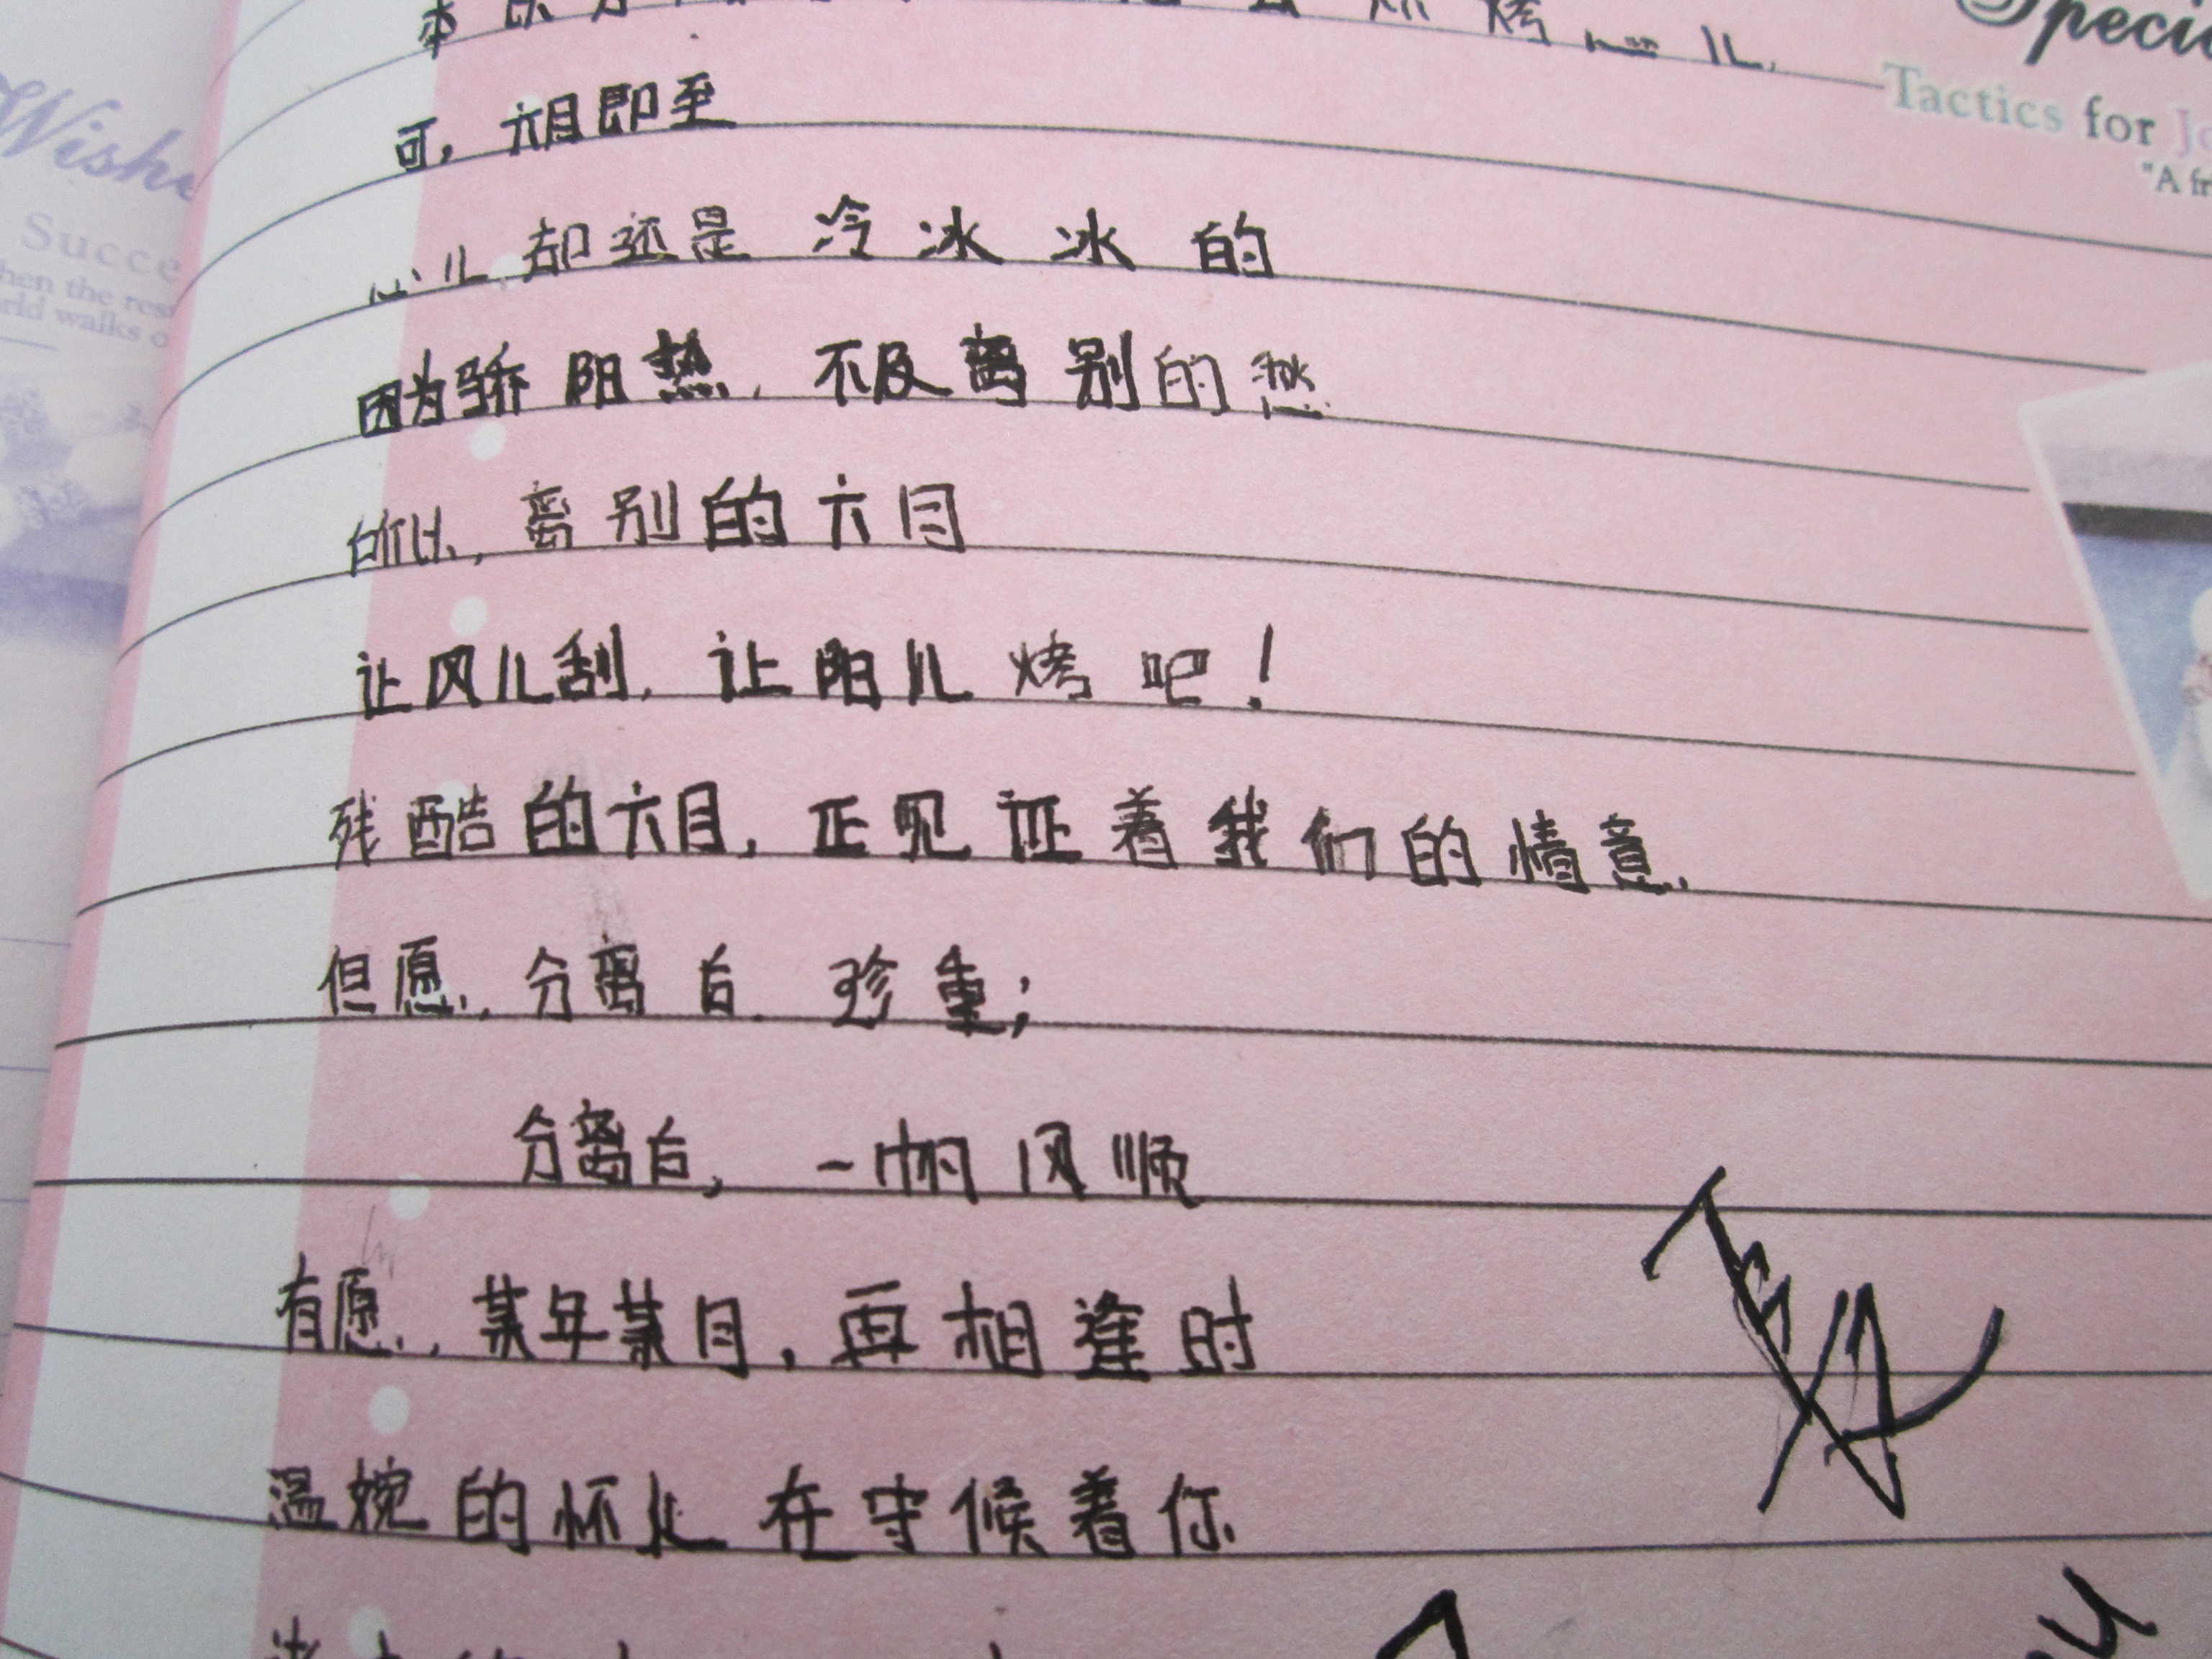 Wishe
Succe
hen the res
rld walks o
Specia
Tactics for Jo
"A fr
烤心儿
可，六月即至
心儿却还是冷冰冰的
因为骄阳热，不及离别的愁
离别的六月
让风儿刮，让阳儿烤吧！
残酷的六月，正见证着我们的情意，
但愿，分离后，珍重；
分离后，一帆风顺
有愿，某年某月，再相逢时
温婉的怀儿在守候着你